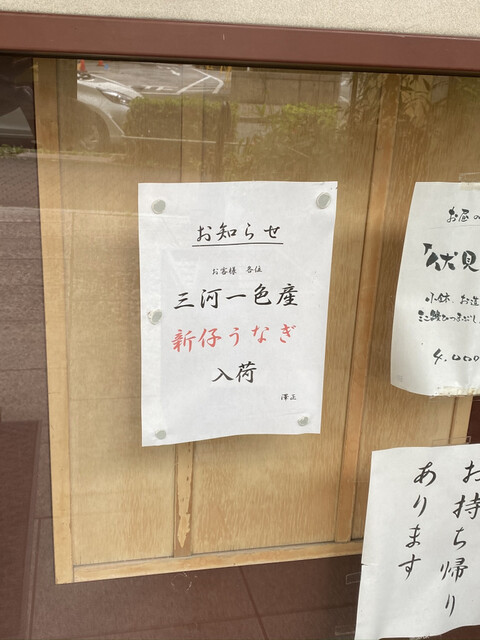 お知らせ
お客様 各位
三河一色産
新仔うなぎ
入荷
澤正
お昼の
「伏見
小鉢、お造
ミニ鰻ひつまぶし
4,000
お持ち帰り
あります